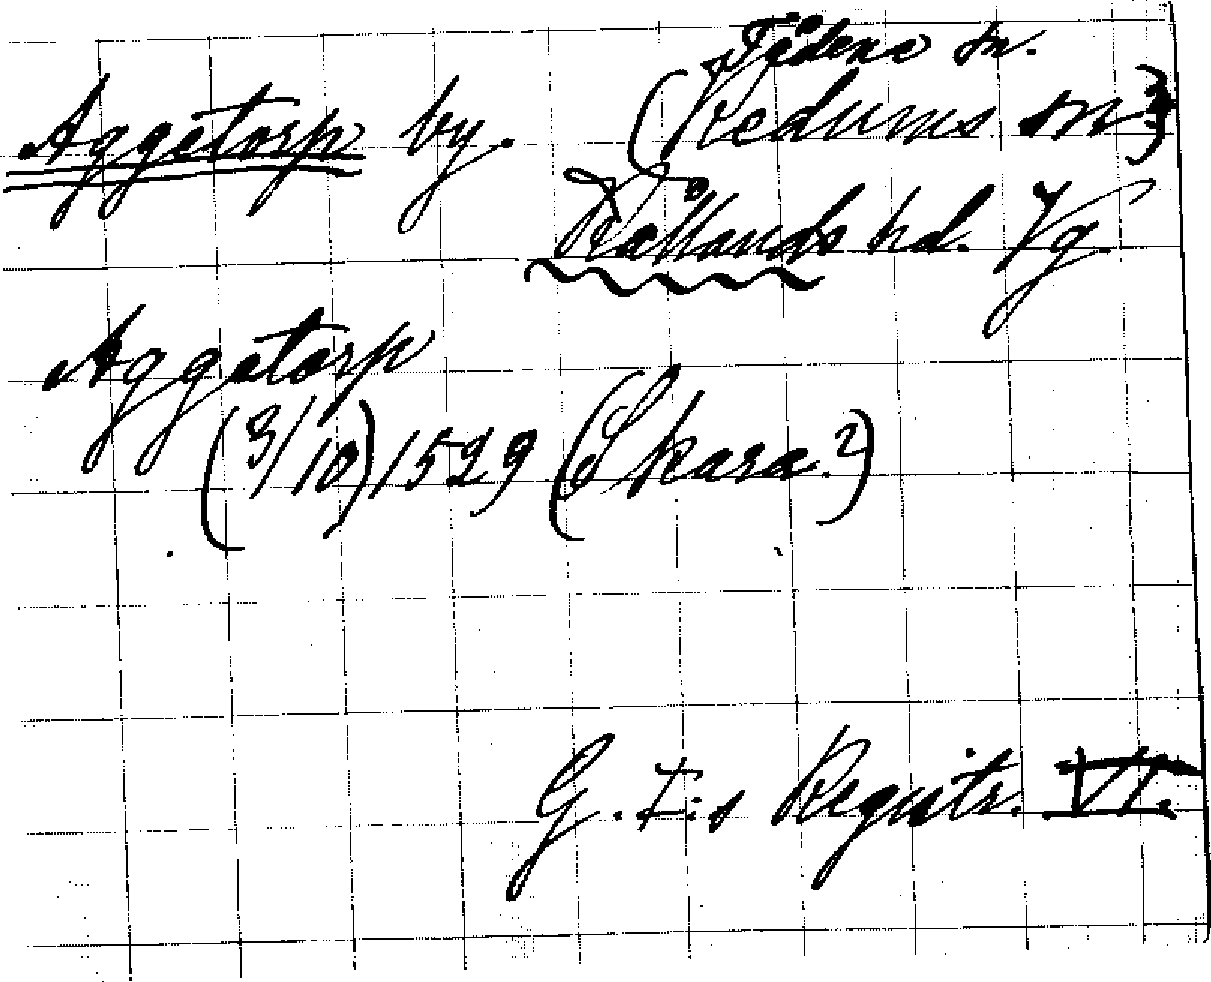 Tådene sn.
Aggetorp by. (Redums sn)
Kållands hd. Vg.
Aggetorp
(3/10) 1529 (Skara?)
G. I:s Registr. VI.